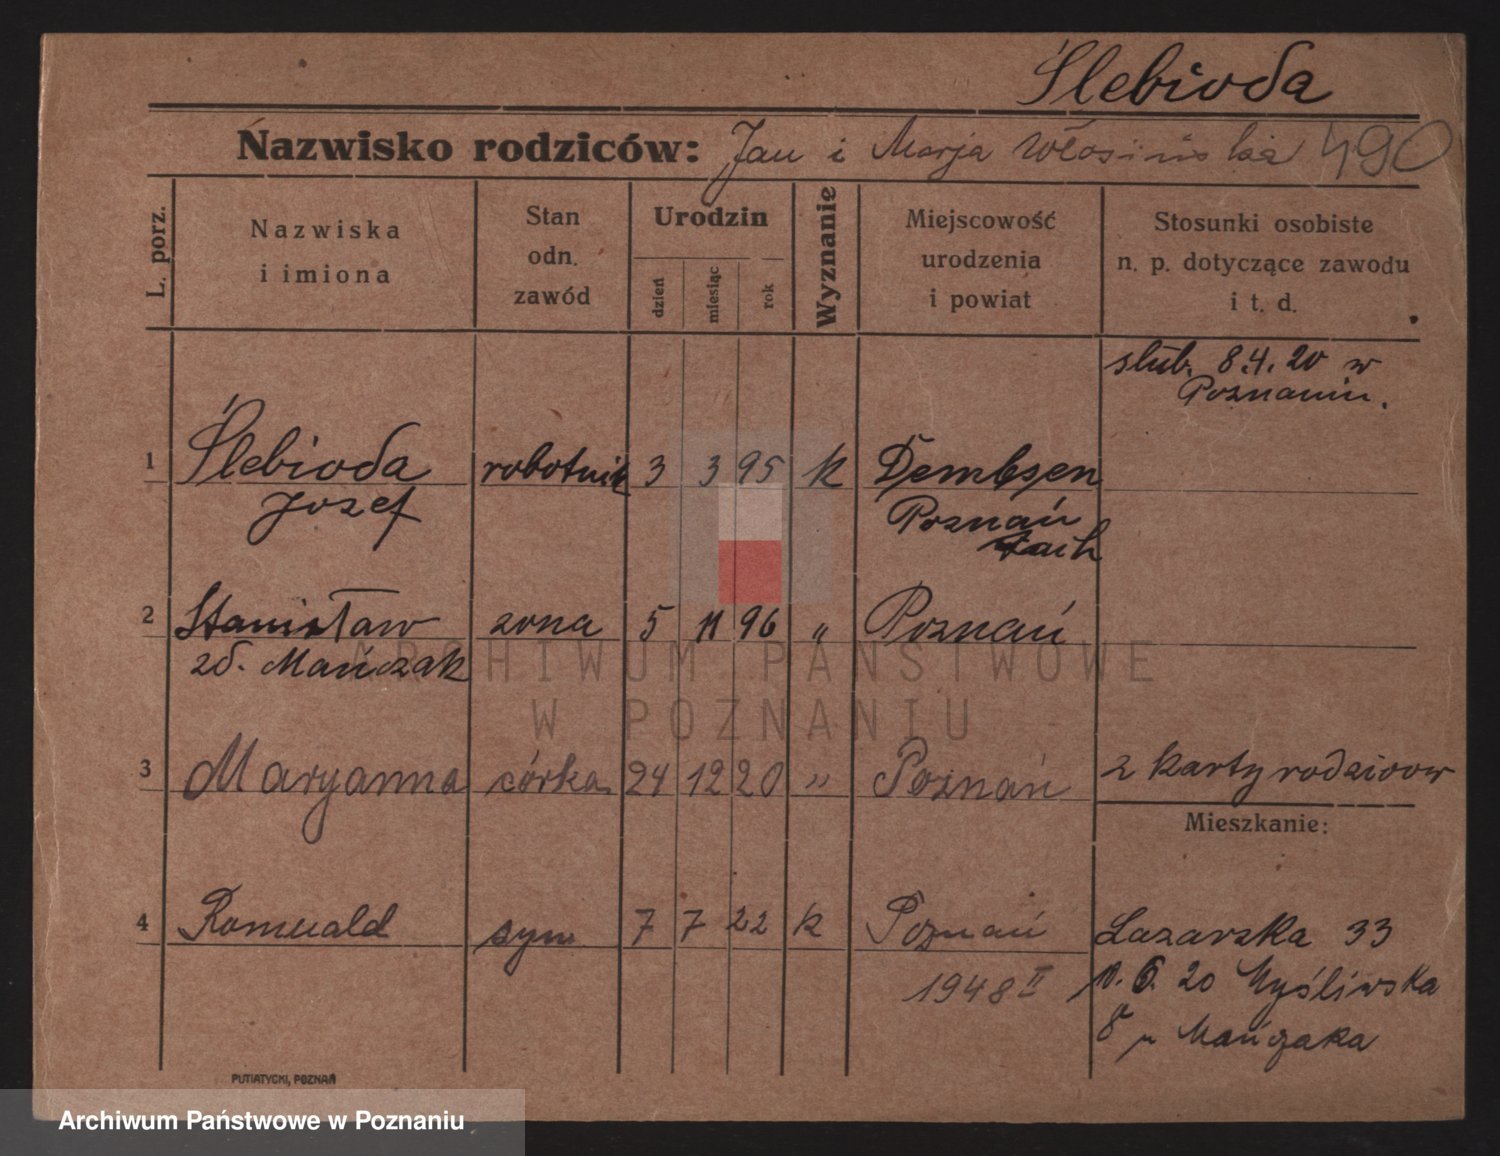 Ślebioda
Nazwisko rodziców: Jan i Marja Włosińska 490
L. porz.
Nazwiska
i imiona
Stan
odn.
zawód
Urodzin
dzień
miesiąc
rok
Wyznanie
Miejscowość
urodzenia
i powiat
Stosunki osobiste
n. p. dotyczące zawodu
i t. d.
slub. 8.4.20 w
Poznaniu.
1 Ślebioda robotnik 3 3 95 k Dembsen
Jozef Poznań
2 Stanisław zona 5 11 96 " Poznań
zd. Mańczak
3 Maryanna córka 24 12 20 " Poznań 2 karty rodzicow
Mieszkanie:
4 Romuald syn 7 7 22 k Poznań Lazarska 33
1948 II 10. 6. 20 Myśliwska
8 u Mańczaka
PUTIATYCKI, POZNAŃ
ARCHIWUM PAŃSTWOWE
W POZNANIU
Archiwum Państwowe w Poznaniu